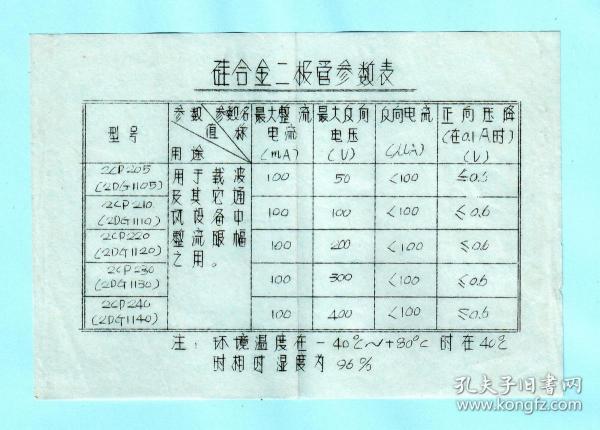 硅合金二极管参数表
型号
参数值 参数名称
用途
最大整流电流(mA)
最大反向电压(V)
反向电流(μA)
正向压降(在0.1A时)(V)
2CP205 (2DG1105) 100 50 <100 ≤0.6
2CP210 (2DG1110) 100 100 <100 ≤0.6
2CP220 (2DG1120) 100 200 <100 ≤0.6
2CP230 (2DG1130) 100 300 <100 ≤0.6
2CP240 (2DG1140) 100 400 <100 ≤0.6
用于载波
及其它通
讯设备中
整流限幅
之用。
注:环境温度在-40℃~+80℃时在40℃
时相对湿度为96%
孔夫子旧书网
www.kongfz.com